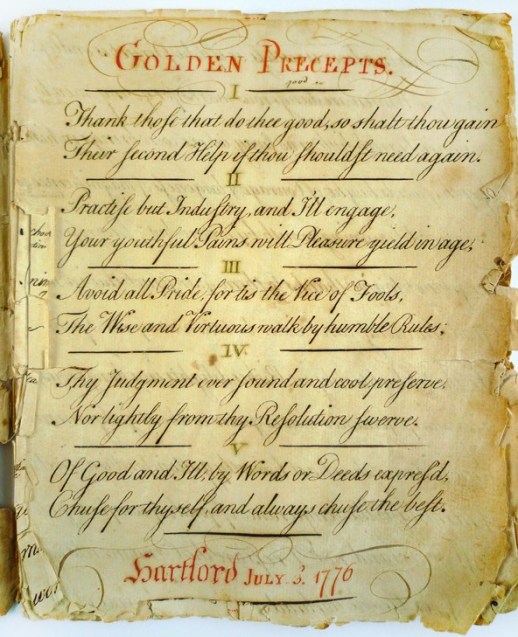 GOLDEN PRECEPTS.
I
Thank those that do thee good, so shalt thou gain
Their second Help if thou shouldst need again.
II
Practise but Industry, and I'll engage,
Your youthful Pains will Pleasure yield in age.
III
Avoid all Pride, for tis the Vice of Fools,
The Wise and Virtuous walk by humble Rules;
IV
Thy Judgment ever sound and cool preserve.
Nor lightly from thy Resolution swerve.
V
Of Good and Ill; by Words or Deeds expres'd,
Chuse for thyself, and always chuse the best.
Hartford JULY. 3. 1776